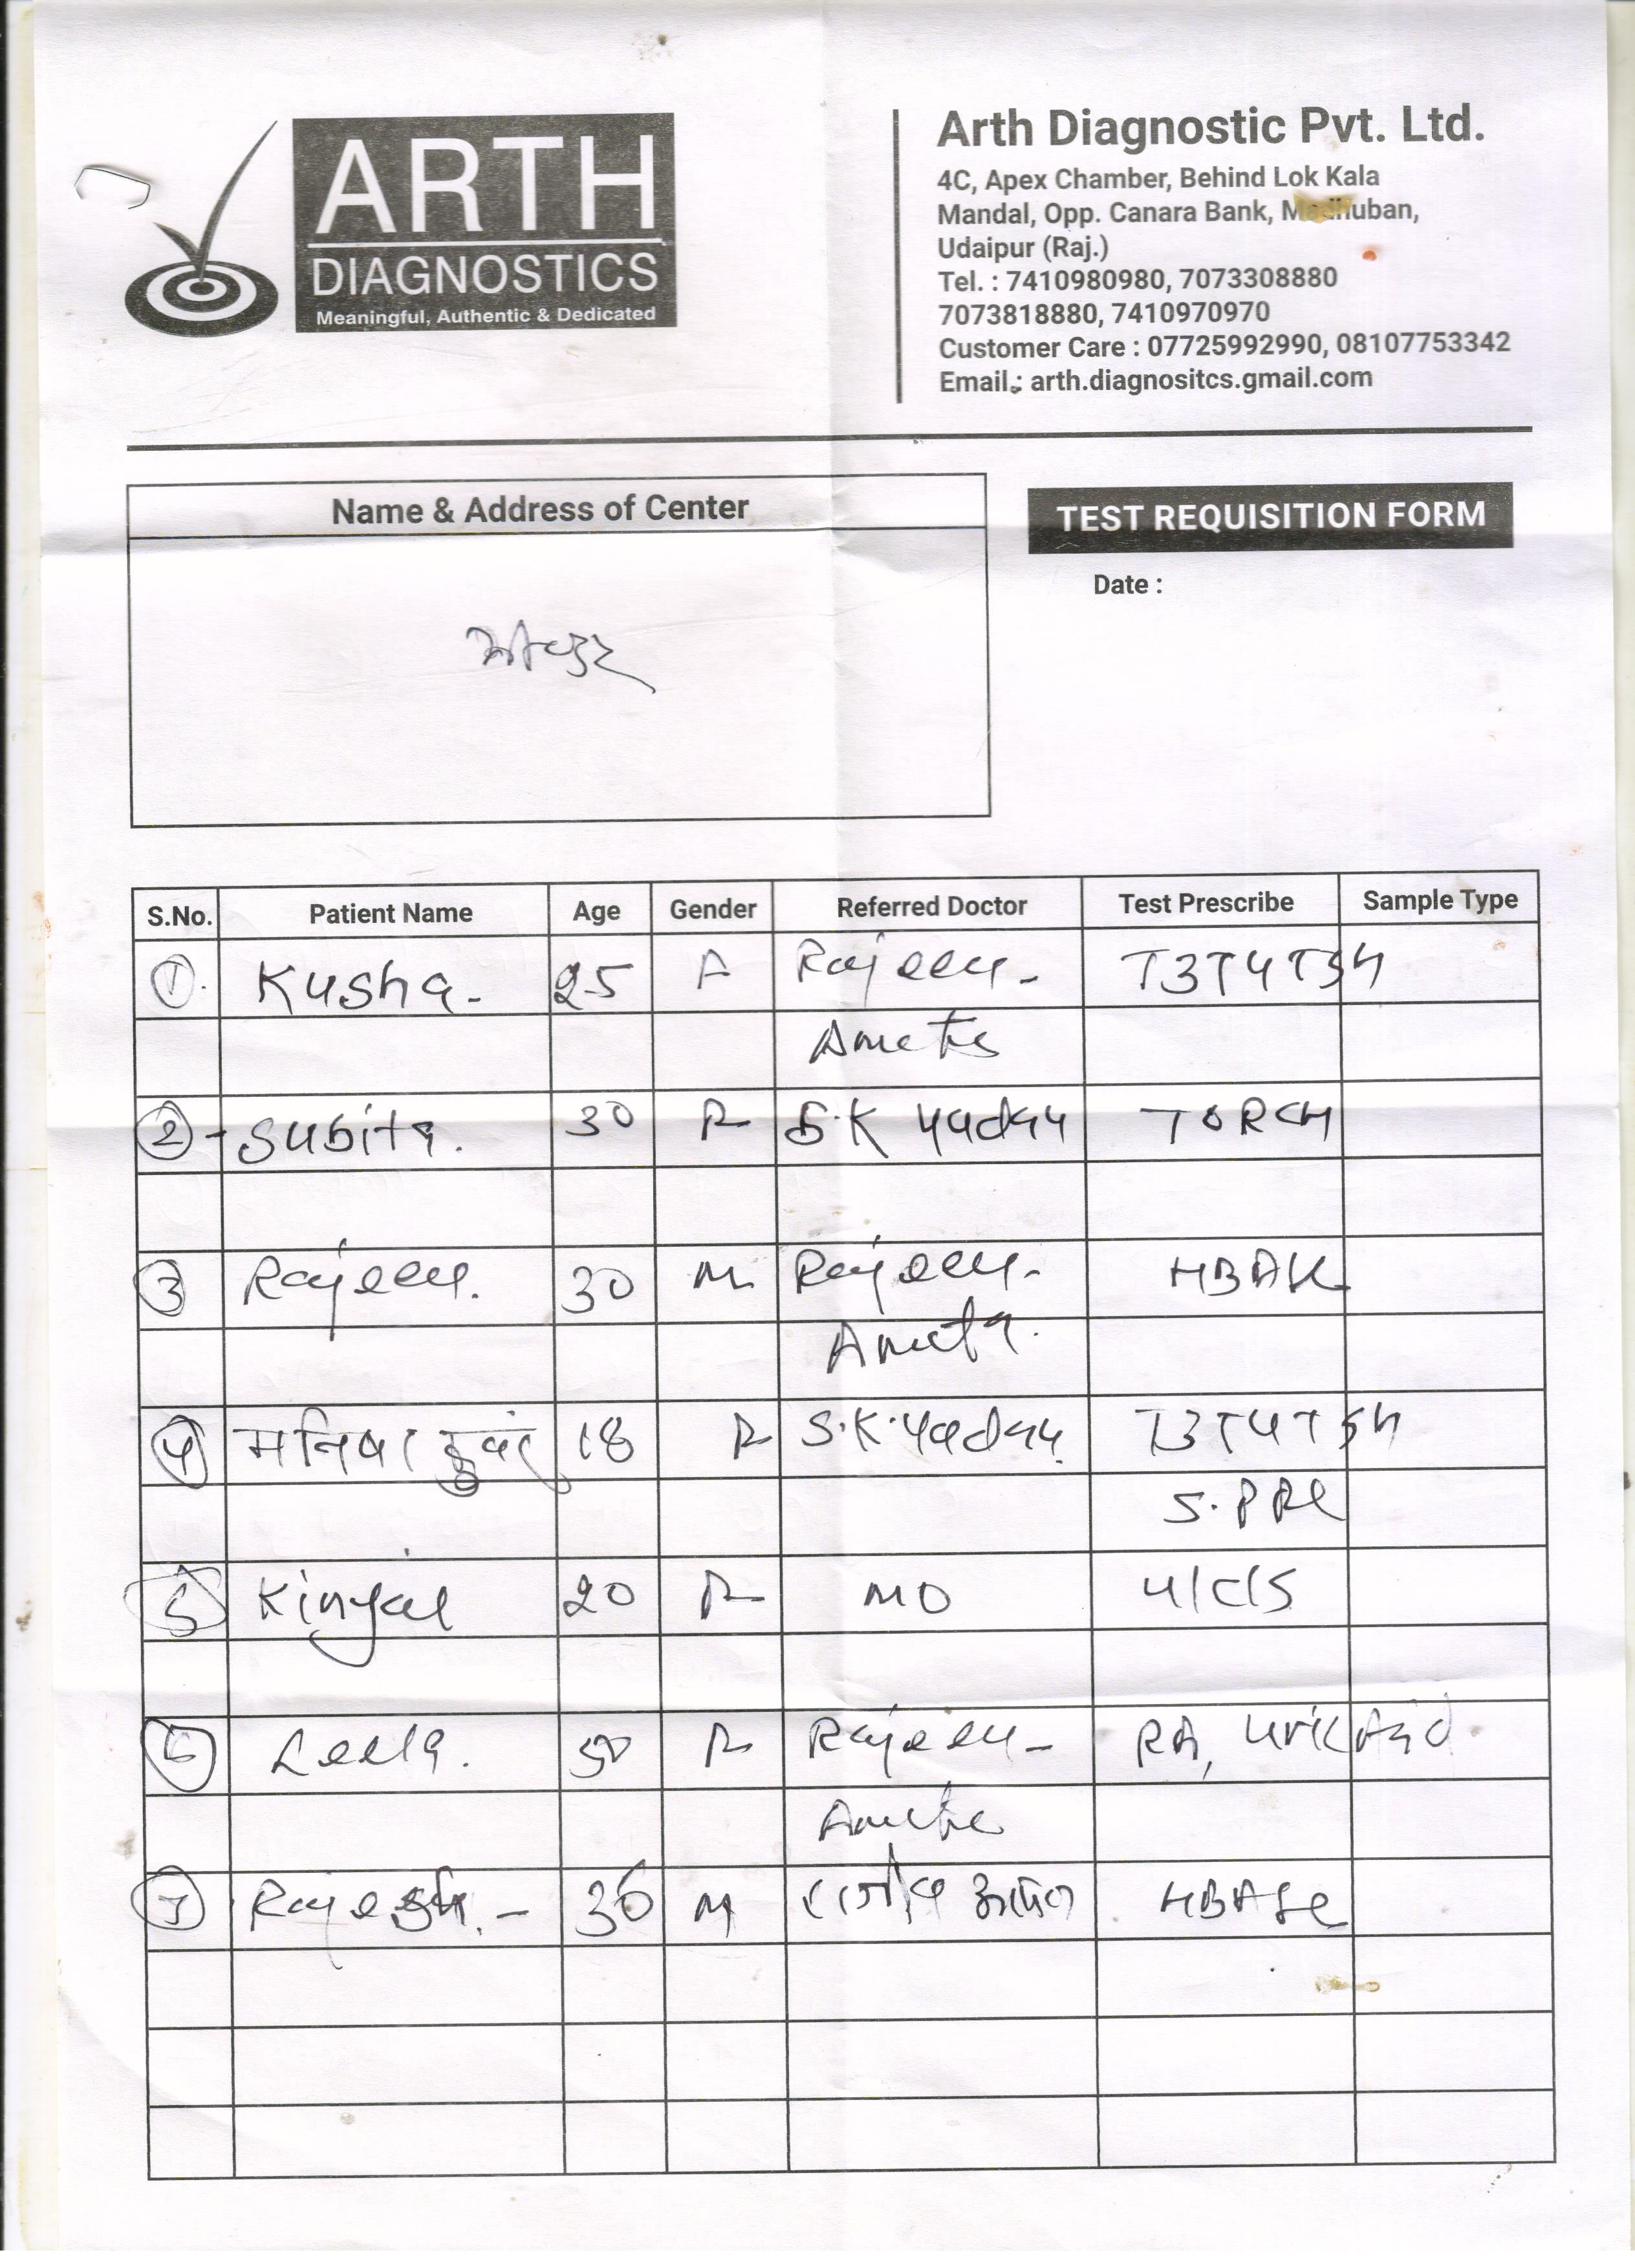 ARTH
DIAGNOSTICS
Meaningful, Authentic & Dedicated
Arth Diagnostic Pvt. Ltd.
4C, Apex Chamber, Behind Lok Kala
Mandal, Opp. Canara Bank, Madhuban,
Udaipur (Raj.)
Tel. : 7410980980, 7073308880
7073818880, 7410970970
Customer Care : 07725992990, 08107753342
Email : arth.diagnositcs.gmail.com
Name & Address of Center
TEST REQUISITION FORM
Date :
S.No. Patient Name Age Gender Referred Doctor Test Prescribe Sample Type
1. Kusha - 25 F Rajeev - T3T4TSH
Ameta
2 - Subita. 30 F S.K Yadav TORCH
3 Rajeev. 30 M Rajeev - HBA1c
Ameta.
4 मनिषा कुवंर 18 F S.K. Yadav T3T4TSH
S. PRL
5 Kinjal 20 F MO U/C/S
6 Leela. 50 F Rajeev - RA, Uric Acid.
Ameta
7 Rajesh. - 36 M राजीव आमेटा HBA1c